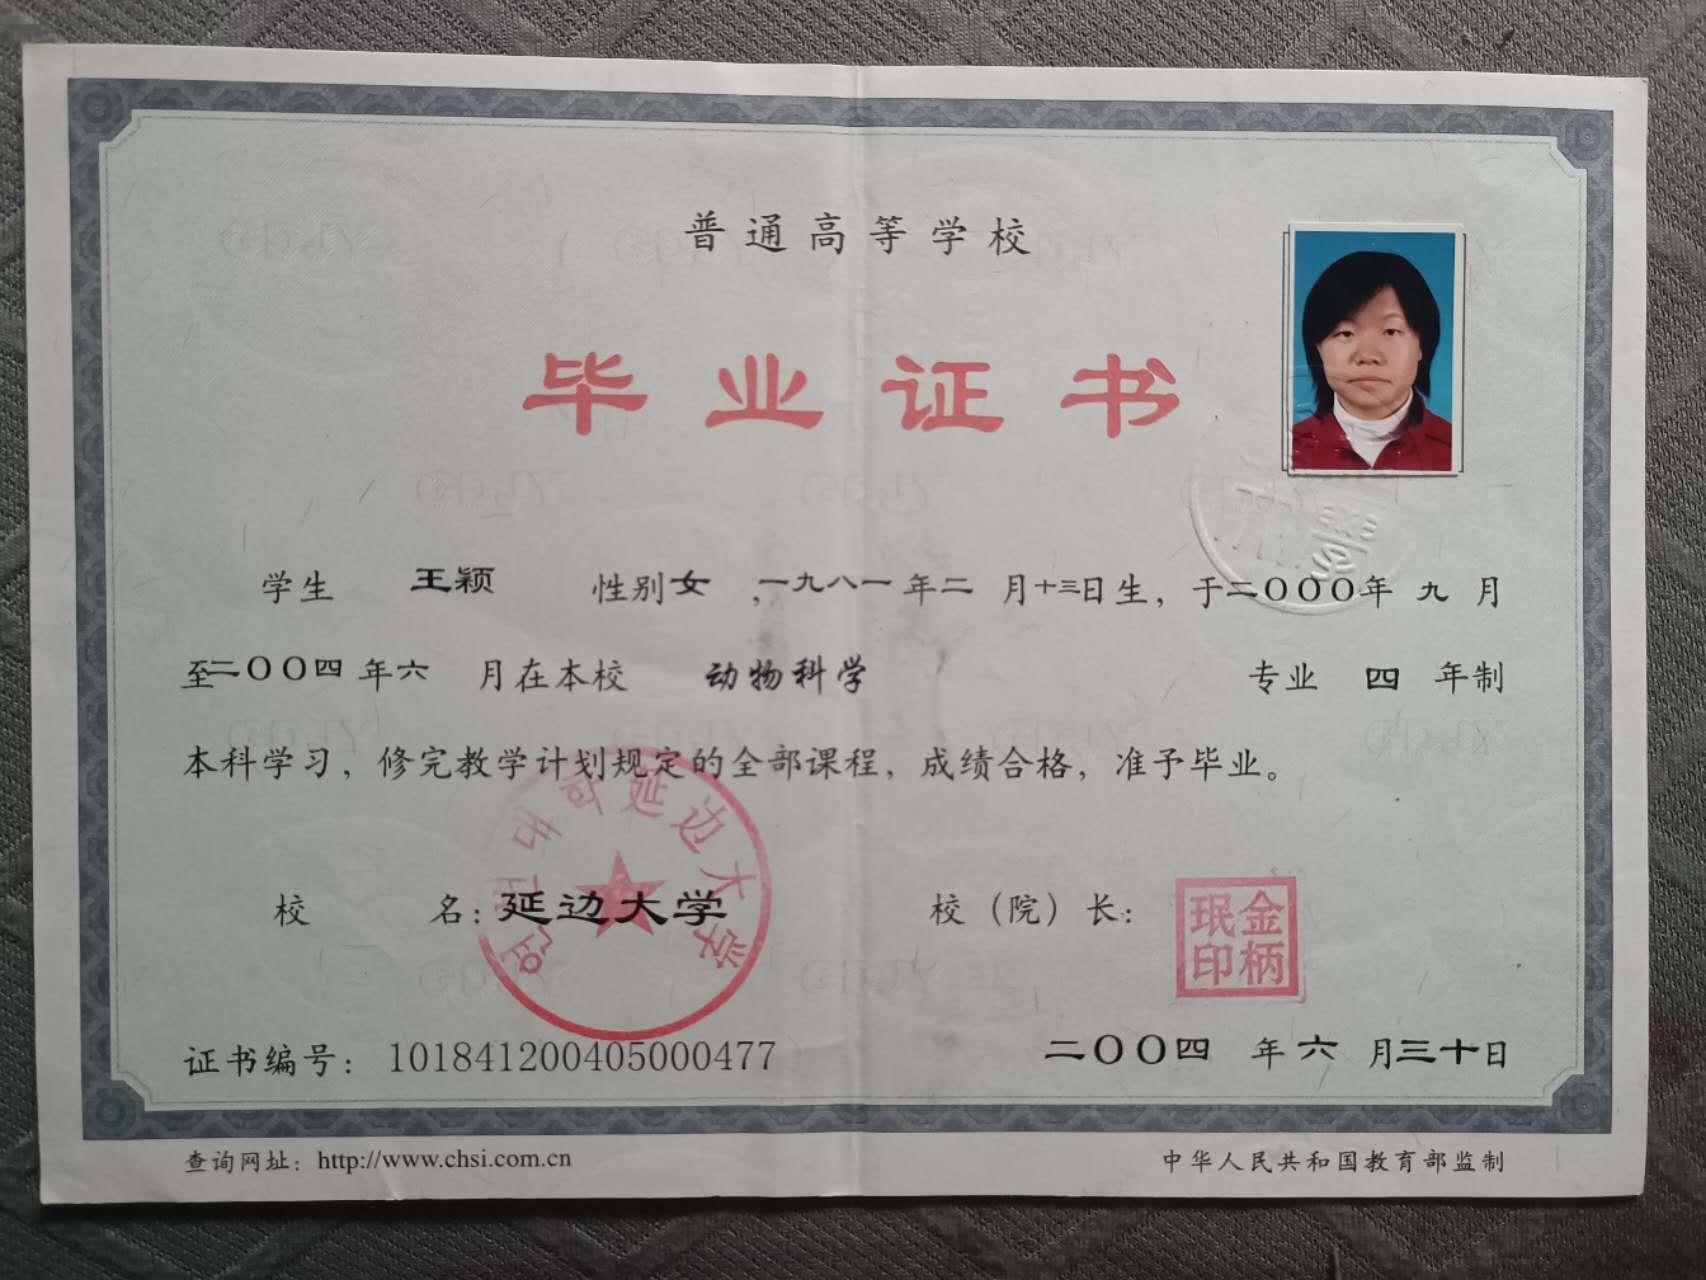 普通高等学校
毕业证书
学生 王颖 性别女，一九八一年二月十三日生，于二〇〇〇年九月
至二〇〇四年六月在本校 动物科学 专业 四 年制
本科学习，修完教学计划规定的全部课程，成绩合格，准予毕业。
延边大学
校 名：延边大学 校（院）长：
金柄珉印
证书编号：101841200405000477 二〇〇四年六月三十日
查询网址：http://www.chsi.com.cn 中华人民共和国教育部监制